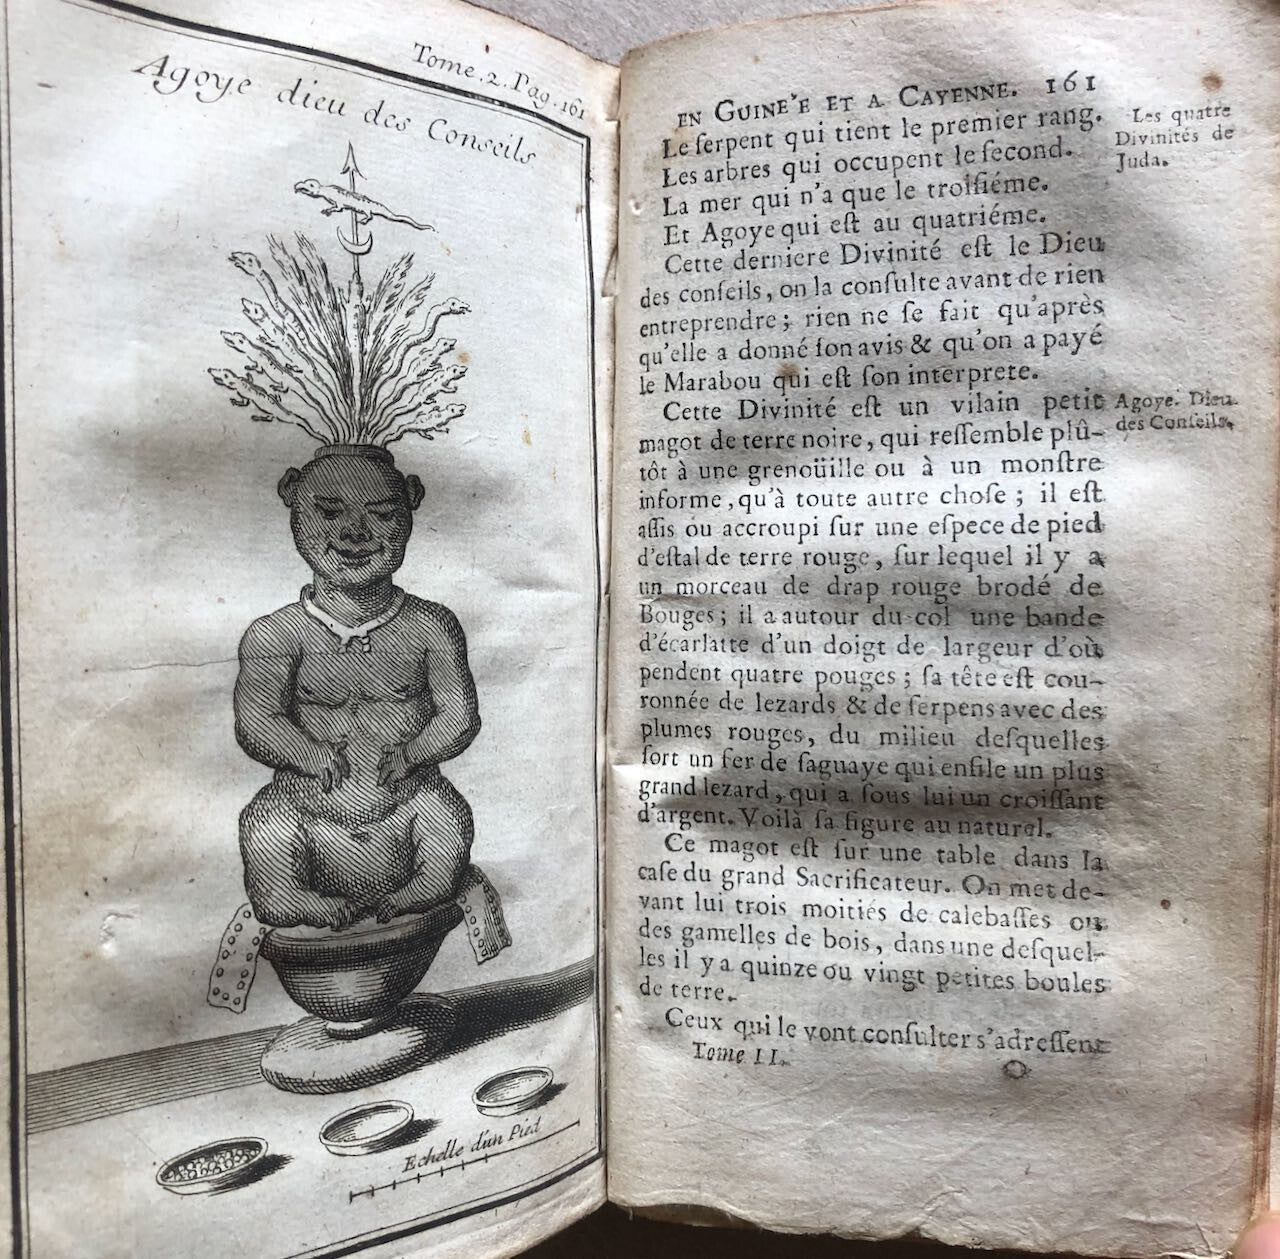 Tome. 2. Pag. 161
Agoye dieu des Conseils
Echelle d'un Pied
EN GUINE'E ET A CAYENNE. 161
Le ſerpent qui tient le premier rang.
Les arbres qui occupent le ſecond.
La mer qui n'a que le troiſiéme.
Et Agoye qui eſt au quatriéme.
Les quatre
Divinités de
Juda.
Cette derniere Divinité eſt le Dieu
des conſeils, on la conſulte avant de rien
entreprendre; rien ne ſe fait qu'après
qu'elle a donné ſon avis & qu'on a payé
le Marabou qui eſt ſon interprete.
Cette Divinité eſt un vilain petit
magot de terre noire, qui reſſemble plû-
tôt à une grenoüille ou à un monſtre
informe, qu'à toute autre choſe; il eſt
aſſis ou accroupi ſur une eſpece de pied
d'eſtal de terre rouge, ſur lequel il y a
un morceau de drap rouge brodé de
Bouges; il a autour du col une bande
d'écarlatte d'un doigt de largeur d'où
pendent quatre pouges; ſa tête eſt cou-
ronnée de lezards & de ſerpens avec des
plumes rouges, du milieu deſquelles
ſort un fer de ſaguaye qui enfile un plus
grand lezard, qui a ſous lui un croiſſant
d'argent. Voilà ſa figure au naturel.
Agoye. Dieu
des Conſeils.
Ce magot eſt ſur une table dans la
caſe du grand Sacrificateur. On met de-
vant lui trois moitiés de calebaſſes ou
des gamelles de bois, dans une deſquel-
les il y a quinze ou vingt petites boules
de terre.
Ceux qui le vont conſulter s'adreſſent
Tome II. O